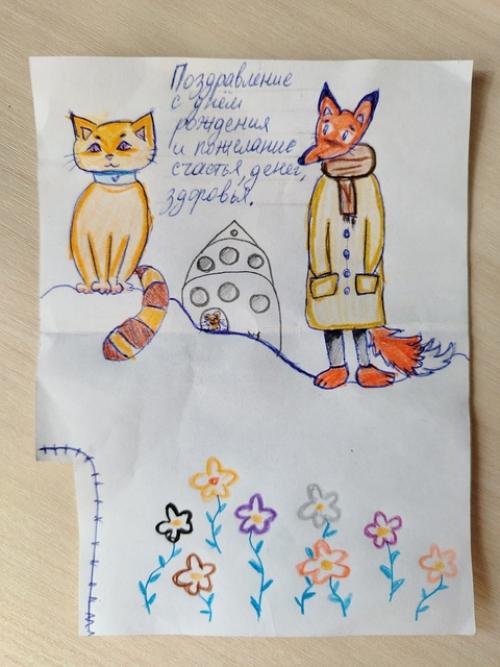 Поздравление
с днём
рождения
и пожелание
счастья, денег,
здоровья.